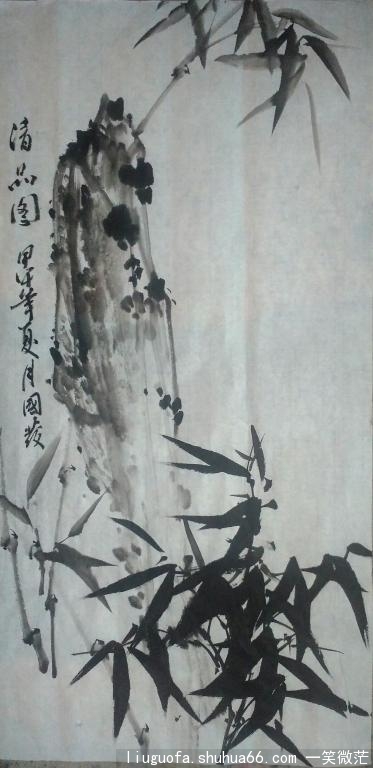 清品图
甲午年夏月國發
liuguofa.shuhua66.com 一笑微茫